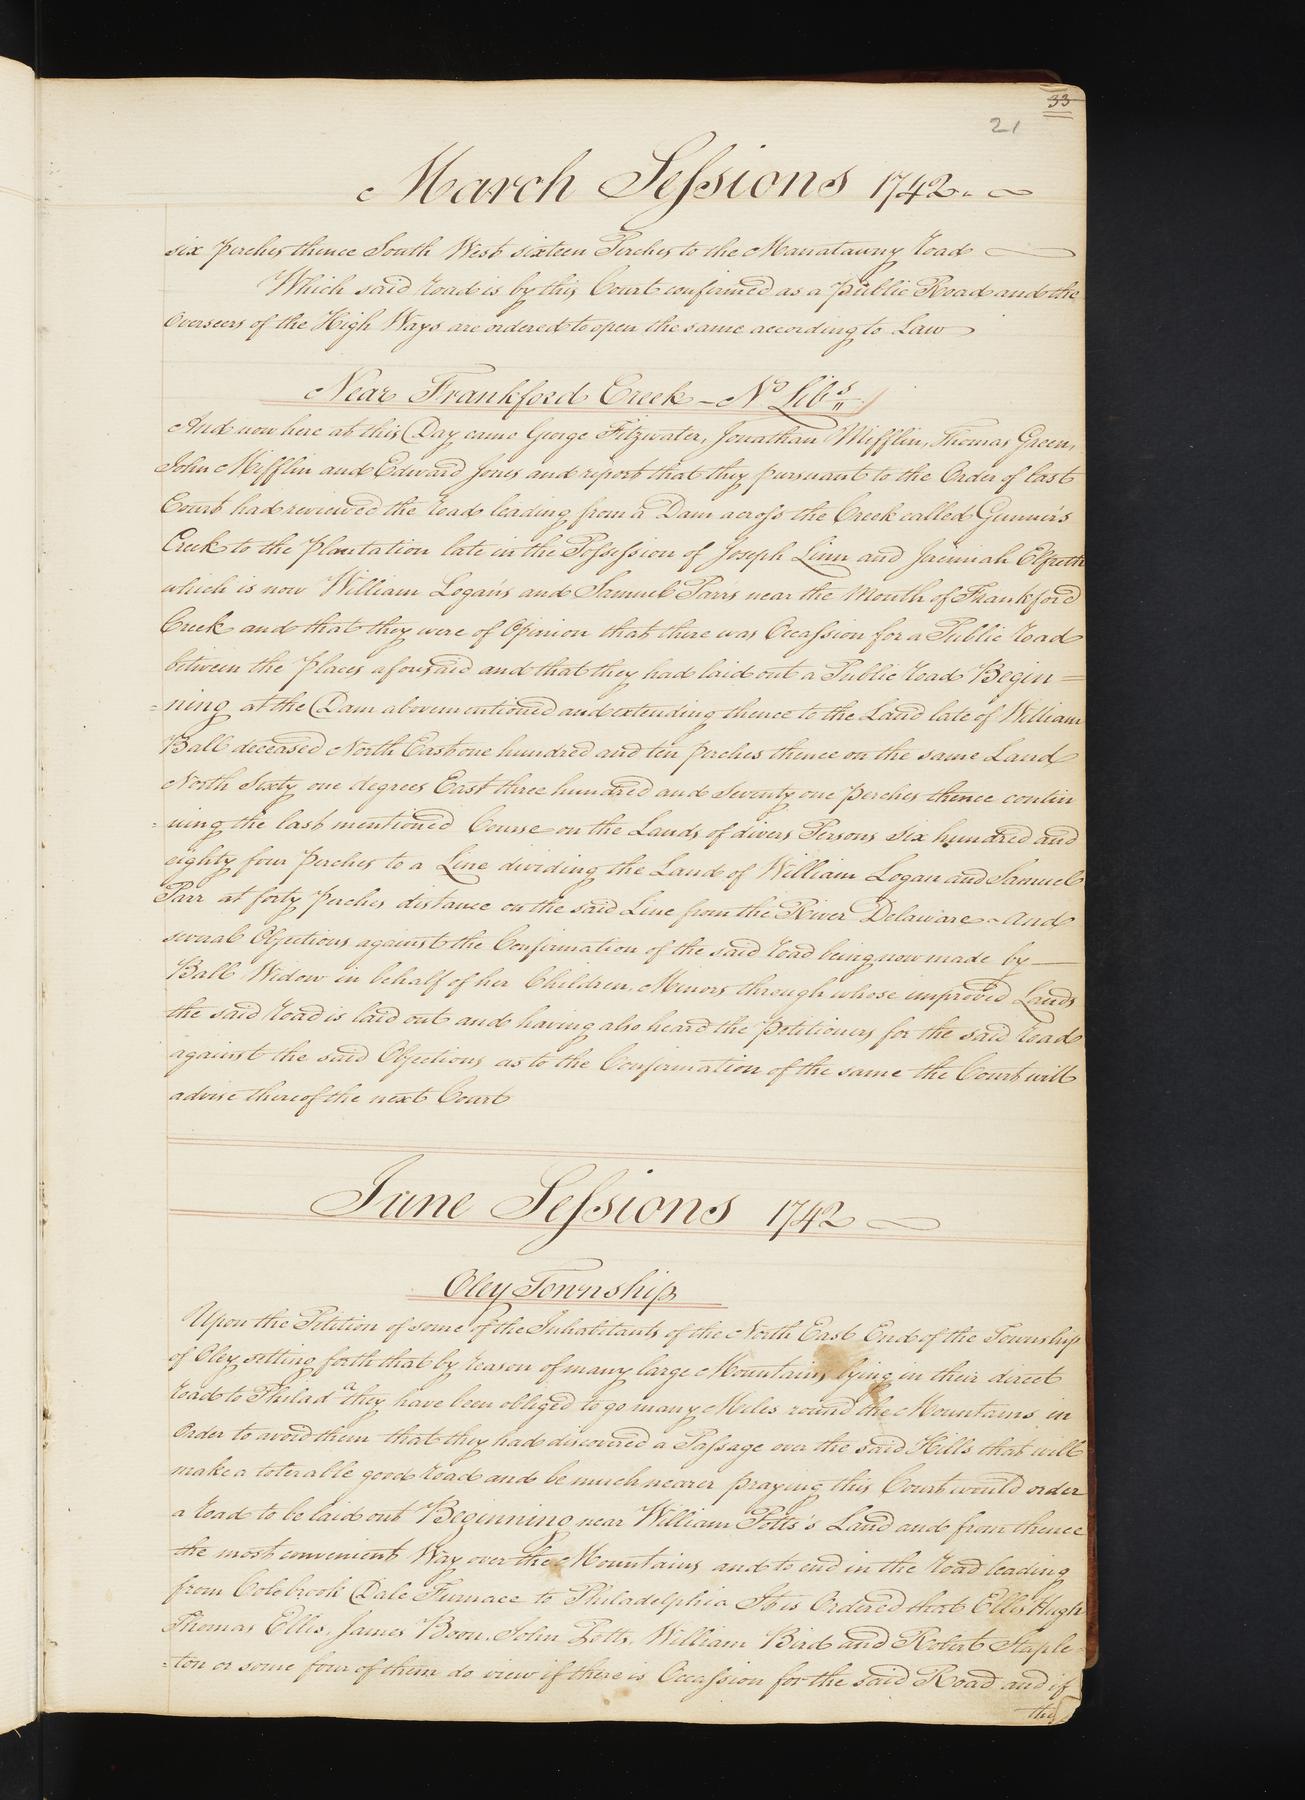 33
21
March Sessions 1742.
six perches thence South West sixteen Perches to the Manatauny road
Which said road is by this Court confirmed as a public Road and the
Overseers of the High Ways are ordered to open the same according to Law
Near Frankford Creek - No. Libs
And now here at this Day came George Fitzwater, Jonathan Mifflin, Thomas Green,
John Mifflin and Edward Jones and report that they pursuant to the Order of last
Court had reviewed the road leading from a Dam across the Creek called Gunner's
Creek to the plantation late in the Possession of Joseph Linn and Jeremiah Elfreth
which is now William Logan's and Samuel Parr's near the Mouth of Frankford
Creek and that they were of Opinion that there was Occassion for a Public road
between the places aforesaid and that they had laid out a Public road Begin=
=ning at the Dam abovementioned and extending thence to the Land late of William
Ball deceased North East one hundred and ten perches thence on the same Land
North Sixty one degrees East three hundred and Seventy one perches thence contin
=uing the last mentioned Course on the Lands of divers Persons six hundred and
eighty four perches to a Line dividing the Land of William Logan and Samuel
Parr at forty perches distance on the said Line from the River Delaware - And
several Objections against the Confirmation of the said road being now made by —
Ball Widow in behalf of her Children, Minors through whose improved Lands
the said road is laid out and having also heard the petitioners for the said road
against the said Objections as to the Confirmation of the same the Court will
advise thereof the next Court
June Sessions 1742
Oley Township
Upon the Petition of some of the Inhabitants of the North East End of the Township
of Oley setting forth that by reason of many large Mountains lying in their direct
road to Philada they have been obliged to go many Miles round the Mountains in
Order to avoid them that they had discovered a Passage over the said Hills that will
make a tolerable good road and be much nearer praying this Court would order
a road to be laid out Beginning near William Potts's Land and from thence
the most convenient Way over the Mountains and to end in the road leading
from Colebrook Dale Furnace to Philadelphia It is Ordered that Ellis Hugh
Thomas Ellis, James Boon, John Potts, William Bird and Robert Staple=
=ton or some four of them do view if there is Occassion for the said Road and if
they